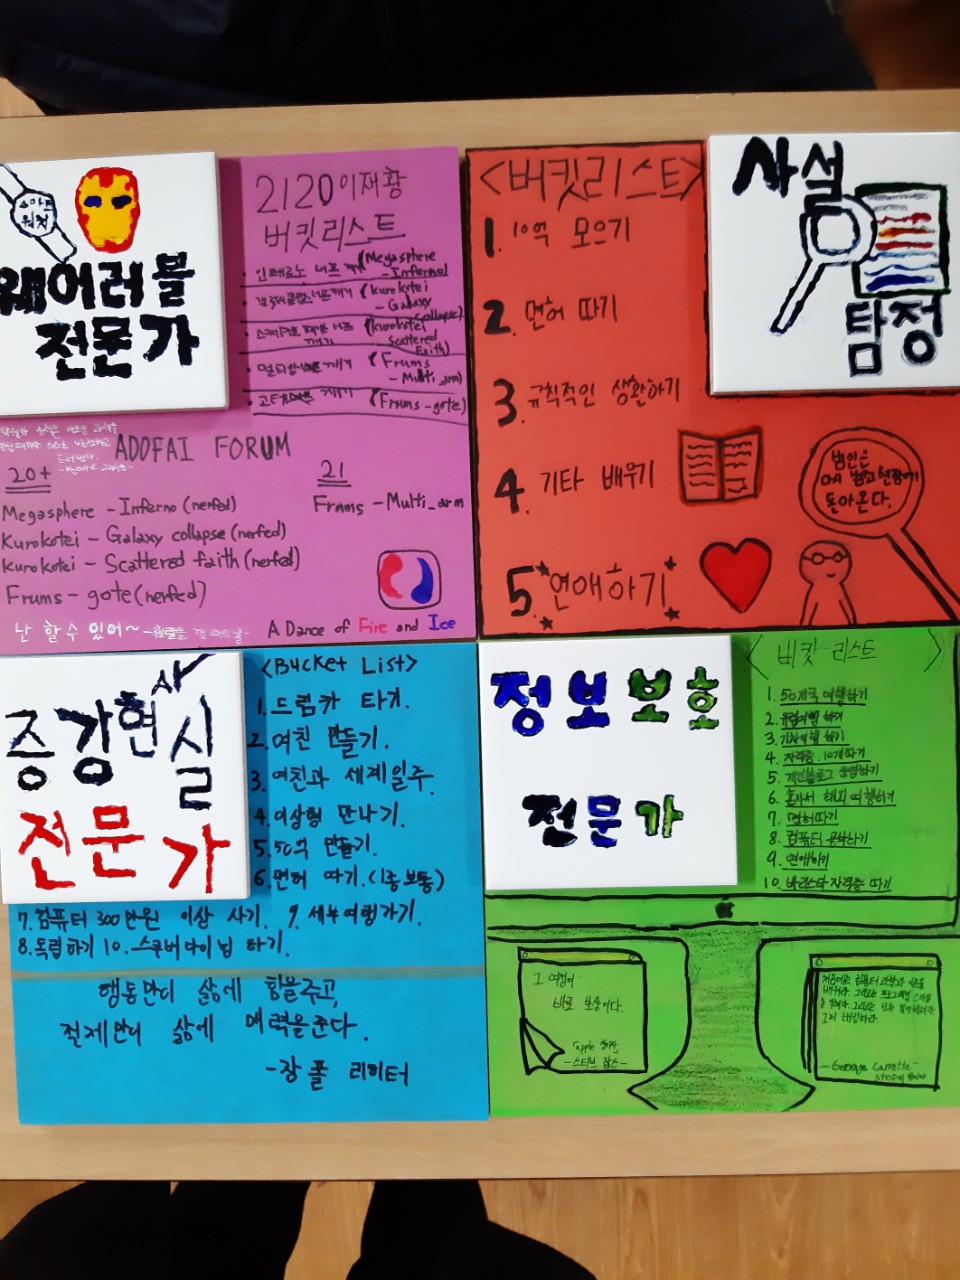 스마트
워치
웨어러블
전문가
2120이재황
버킷리스트
인페르노 너프 깨기 (Megasphere
-Inferno)
(Kurokotei
- Galaxy
collapse)
(Kurokotei
Scattered
Faith)
깨기 (Frums
- Multi_arm)
깨기 (Frums-gote)
ADOFAI FORUM
20+
21
Megasphere - Inferno (nerfed)
Frums - Multi_arm
Kurokotei - Galaxy collapse (nerfed)
Kurokotei - Scattered faith (nerfed)
Frums - gote (nerfed)
난 할 수 있어~
A Dance of Fire and Ice
<버킷리스트>
1. 10억 모으기
2. 면허 따기
3. 규칙적인 생활하기
4. 기타 배우기
5. 연애하기
사설
탐정
범인은
범죄현장에
돌아온다.
증강현실
전문가
<Bucket List>
1. 드림카 타기.
2. 여친 만들기.
3. 여친과 세계일주.
4. 이상형 만나기.
5. 50억 만들기.
6. 면허 따기.(1종보통)
7. 컴퓨터 300만원 이상 사기. 9. 세부여행가기.
8. 독립하기 10. 스쿠버다이빙 하기.
행동만이 삶에 힘을주고,
절제만이 삶에 매력을준다.
-장 폴 리히터
정보보호
전문가
<버킷 리스트>
1. 50개국 여행하기
2. 유럽여행 하기
3. 기차여행 하기
4. 자격증 10개따기
5. 개인블로그 운영하기
6. 혼자서 해외 여행하기
7. 면허따기
8. 컴퓨터 공부하기
9. 연애하기
10. 바리스타 자격증 따기
그 여정이
바로 보상이다.
apple
-스티브 잡스-